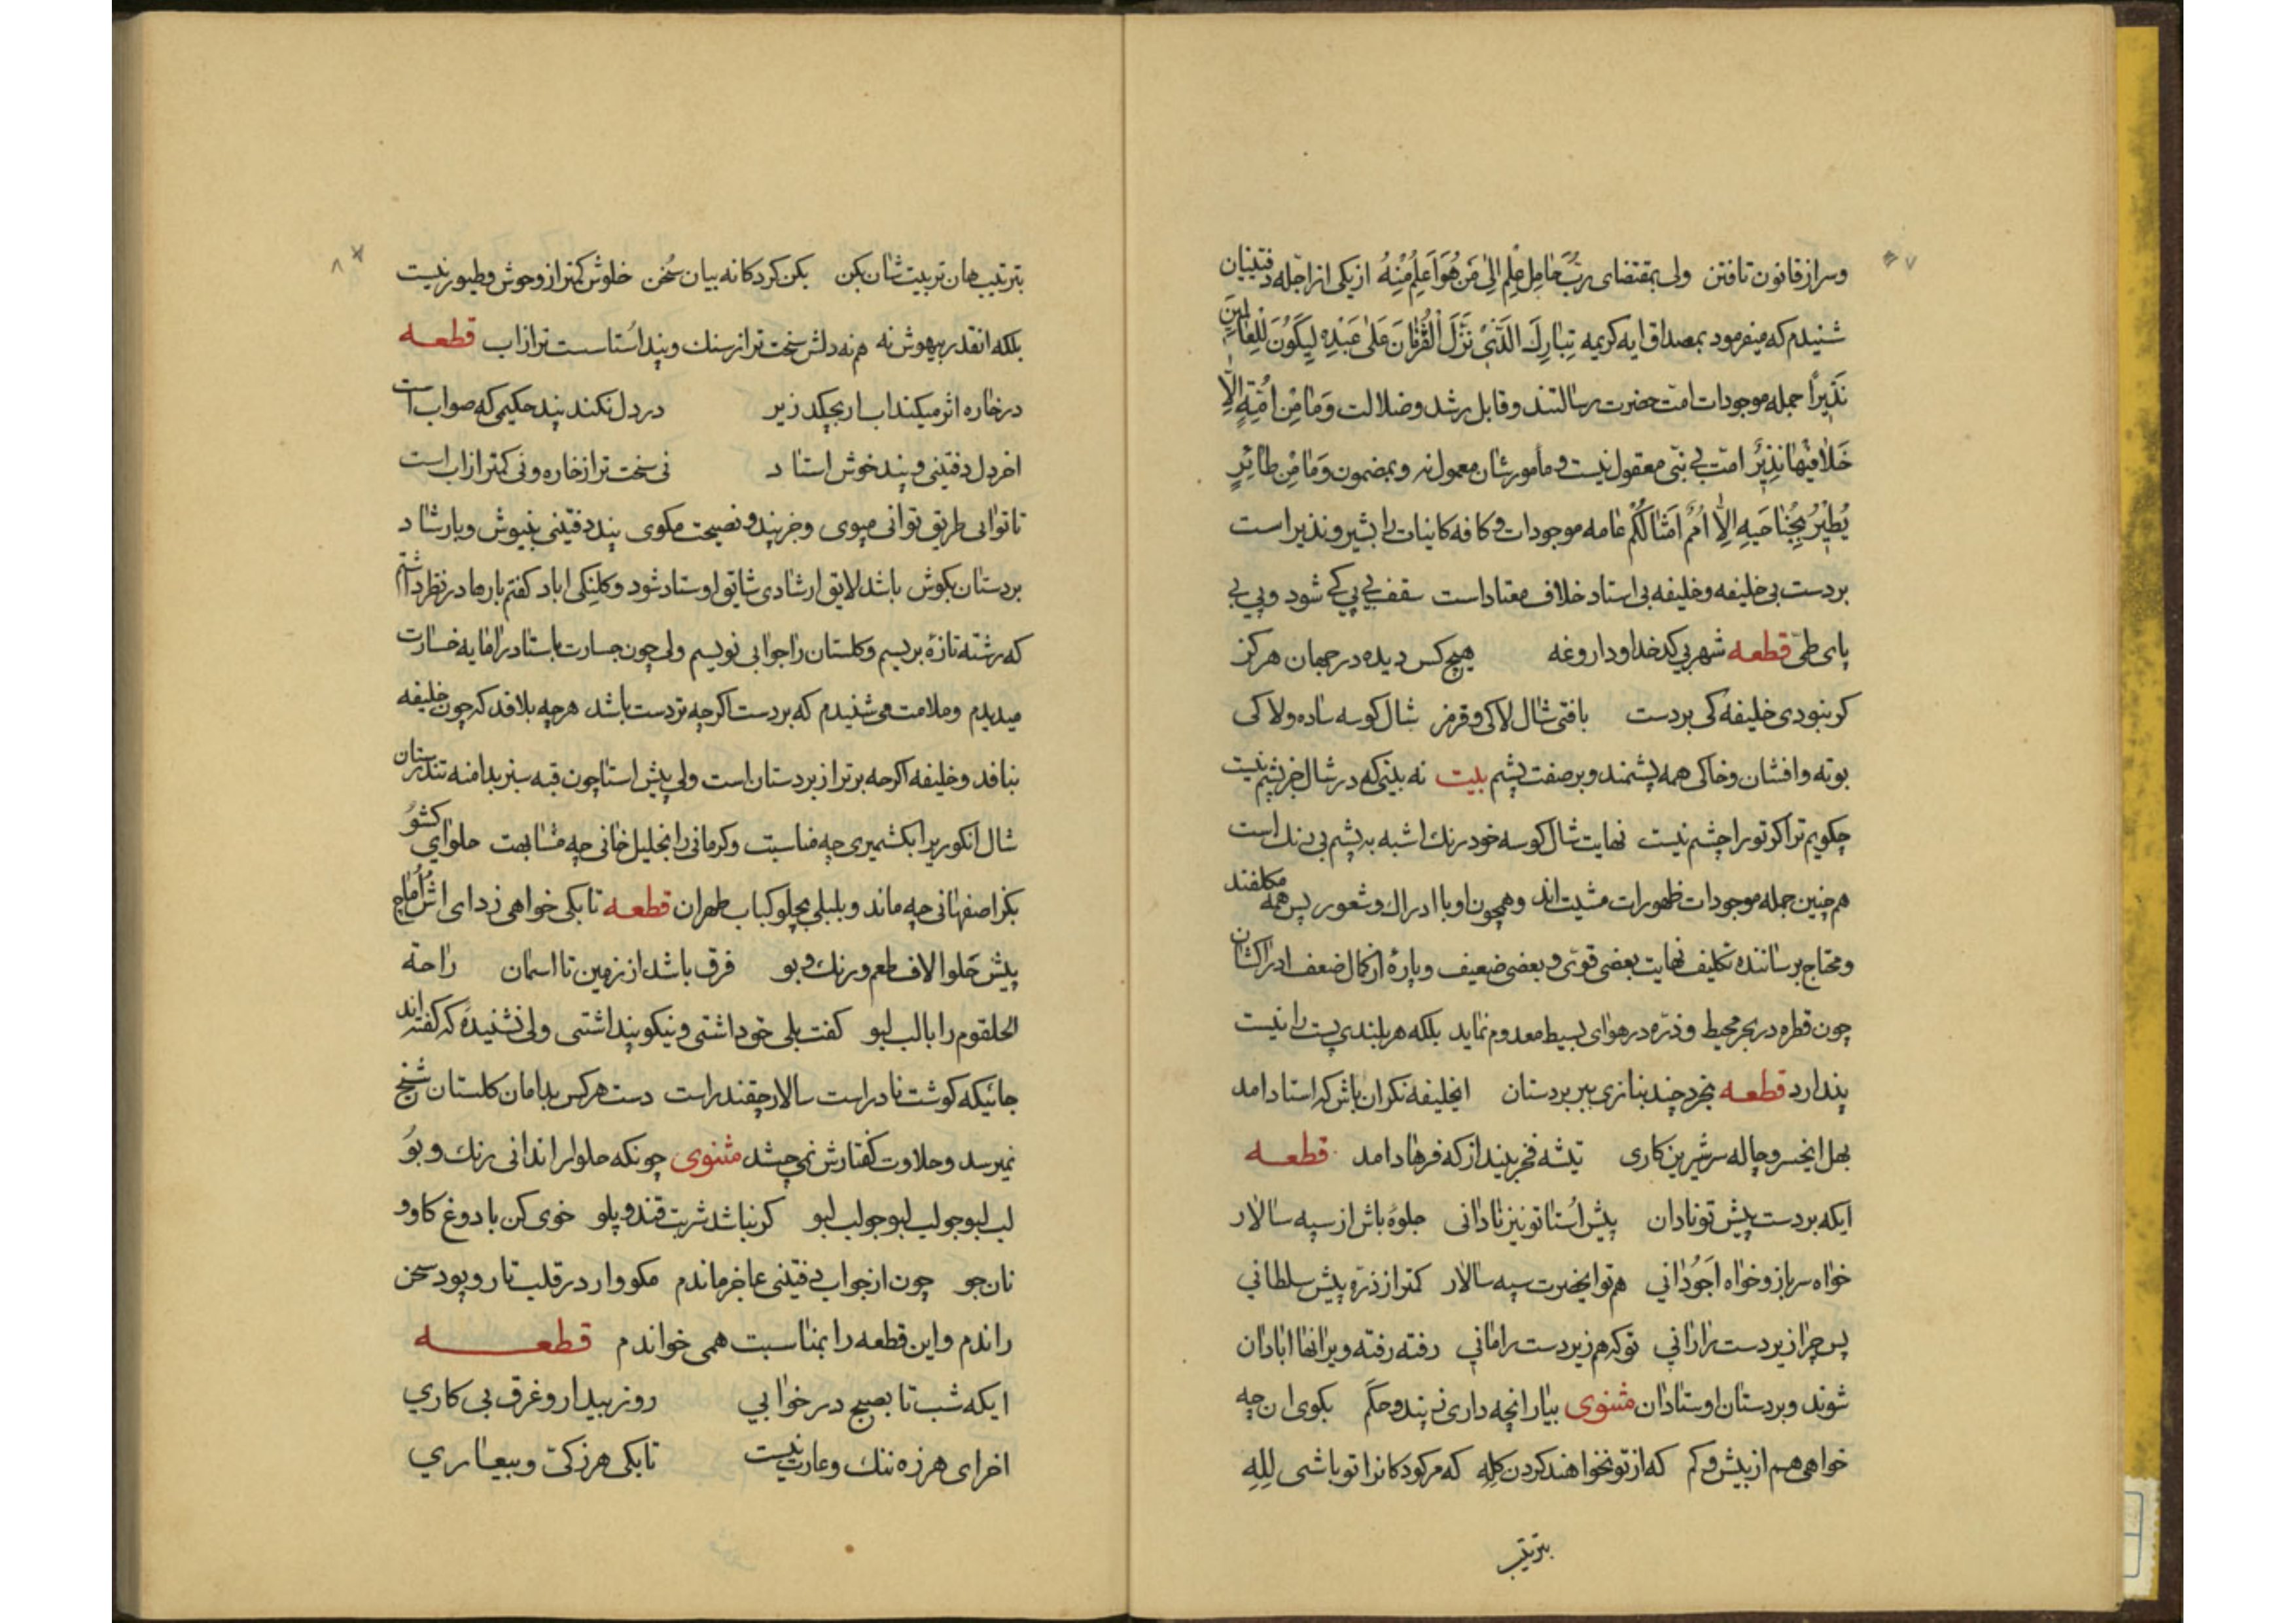 ۷
وسر از قانون تافتن ولی بمقتضای رُبَّ حٰامِلِ عِلْمٍ اِلیٰ مَنْ هُوَ اَعْلَمُ مِنْهُ از یکی از اجّله دفتینیان
شنیدم که میفرمود بمصداق ایه کریمه تَبٰارَكَ الَّذی نَزَّلَ الْفُرْقٰانَ عَلیٰ عَبْدِهِ لِیَکُونَ لِلْعٰالَمینَ
نَذیراً جمله موجودات امّت حضرت رسالتند و قابل رشد و ضلالت وَمٰا مِنْ اُمَّةٍ اِلّٰا
خَلٰا فیهٰا نَذیرٌ امّت بی نبّی معقول نیست و مأمورشان معمول نه وبمضمون وَمٰا مِنْ طٰائِرٍ
یَطیْرُ بِجَنٰاحَیهِ اِلّٰا اُمَمٌ اَمْثٰالُکُمْ عٰامه موجودات و کافه کاینات را بشیر و نذیر است
بردست بی خلیفه و خلیفه بی استاد خلاف معتاد است سقف بی پی کی شود و پی بی
پای طی قطعه شهر بی کدخدا و داروغه هیچ کس دیده در جهان هرکز
کر نبودی خلیفه کی بردست بافتی شال لاکی و قرمز شال کوسه ساده ولاکی
بوته وافشان وخاکی همه پشمند وبر صفت پشم بیت نه بینی که در شال جز پشم نیست
چکویم ترا کر تو را چشم نیست نهایت شال کوسه خود رنك اشبه به پشم بی رنك است
هم چنین جمله موجودات ظهورات مشیت اند وهمچون او با ادراك و شعور پس همه مکلفند
ومحتاج برساننده تکلیف نهایت بعضی قوّی و بعضی ضعیف و پارهٔ از کمال ضعف ادراکشان
چون قطره در بحر محیط و ذرّه در هوای بسیط معدوم نماید بلکه هر بلندی پست را نیست
پندارد قطعه بخرد چند بنازی ببر بردستان ایخلیفه نکران باش که استاد امد
بهل ایخسرو چاله سر شیرین کاری تیشه فخر بینداز که فرهاد امد قطعه
ایکه بردست پیش تو نادان پیش اُستا تو نیز نادانی جلوهٔ باش از سپه سالار
خواه سرباز و خواه اَجُودٰانی هم تو ایحضرت سپه سالار کمتر از ذرّه پیش سلطانی
پس چرا زیردست را رانی تو که هم زیردست را مانی رفته رفته ویرانها ابادان
شوند و بردستان اوستادان مثنوی بیار انچه داری ز پند و حکم بکوی ان چه
خواهی هم از بیش و کم که از تو نخواهند کردن کله که مر کودکانرا تو باشی لَلِه
بترتیب
۸
بترتیب هان تربیت شان بکن بکن کردکانه بیان سُخن خلوش کمتر از وحوش و طیور نیست
بلکه انقدر بیهوش نه هم نه دلش سخت تر از سنك و پند اُستا سست تر از اب قطعه
در خاره اثر میکند اب ار بچکد زیر در دل نکند پند حکیمی که صواب است
اخر دل دفتینی و پند خوش استاد نی سخت تر از خاره و نی کمتر از اب است
تا توانی طریق توانی مپوی وجز پند و نصیحت مکوی پند دفتینی بنیوش و بارشاد
بردستان بکوش باشد لایق ارشادی شاتق اوستاد شود و کلنکی اباد کفتم بارها در نظر داشتم
که رشته تازهٔ بریسم و کلستان را جوابی نویسم ولی چون جسارت باستاد را مایه خسارت
میدیدم و ملامت می شنیدم که بردست اکرچه تردست باشد هرچه بلافد که چون خلیفه
بنافد وخلیفه اکرچه برتر از بردستان است ولی پیش استا چون قبه سبز بدامنه تندرستان
شال انکوریرا بکشمیری چه مناسبت وکرمانی را بخلیل خانی چه مشابهت حلوای کشو
بکز اصفهانی چه ماند و بلبلی بچلو کباب طهران قطعه تا بکی خواهی زد ای اش اُماج
پیش حَلوا لاف طعم و رنك و بو فرق باشد از زمین تا اسمان راحة
الحلقوم را با لب لبو کفت بلی خو داشتی و نیکو پنداشتی ولی نشنیدهٔ که کفته اند
جائیکه کوشت نادر است سالار چقندر است دست هر کس بدامان کلستان شیخ
نمیرسد و حلاوت کفتارش نمی چشد مثنوی چونکه حلوا را ندانی رنك و بو
لب لبو جو لب لبو جو لب لبو کر نباشد شربت قند و پلو خوی کن با دوغ کاو و
نان جو چون از جواب دفتینی عاجز ماندم مکو وار در قلب تار و پود سخن
راندم و این قطعه را بمناسبت همی خواندم قطعه
ایکه شب تا بصبح در خوابی روز بیدار و غرق بی کاری
اخر ای هرزه ننك و عارت نیست تا بکی هرزکیّ و بیعاری